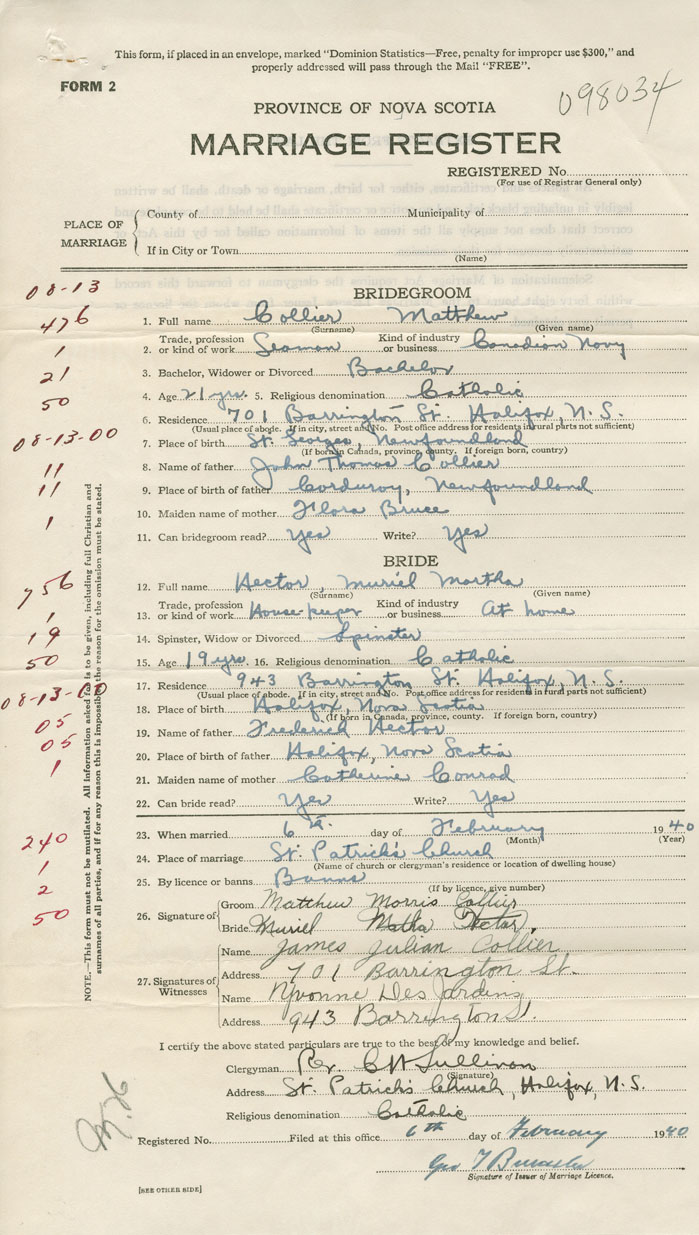 This form, if placed in an envelope, marked "Dominion Statistics—Free, penalty for improper use $300," and
properly addressed will pass through the Mail "FREE".
FORM 2
098034
PROVINCE OF NOVA SCOTIA
MARRIAGE REGISTER
REGISTERED No.
(For use of Registrar General only)
PLACE OF MARRIAGE
County of Municipality of
If in City or Town
(Name)
08-13
BRIDEGROOM
476
1. Full name Collier Matthew
(Surname) (Given name)
1
2. Trade, profession or kind of work Seaman Kind of industry or business Canadian Navy
21
3. Bachelor, Widower or Divorced Bachelor
50
4. Age 21 yrs. 5. Religious denomination Catholic
6. Residence 701 Barrington St. Halifax, N.S.
(Usual place of abode. If in city, street and No. Post office address for residents in rural parts not sufficient)
08-13-00
7. Place of birth St. Georges, Newfoundland
(If born in Canada, province, county. If foreign born, country)
11
8. Name of father John Thomas Collier
11
9. Place of birth of father Corduroy, Newfoundland
1
10. Maiden name of mother Flora Bruce
11. Can bridegroom read? Yes Write? Yes
BRIDE
756
12. Full name Hector, Muriel Martha
(Surname) (Given name)
1
13. Trade, profession or kind of work House-keeper Kind of industry or business At home
19
14. Spinster, Widow or Divorced Spinster
50
15. Age 19 yrs. 16. Religious denomination Catholic
08-13-00
17. Residence 943 Barrington St. Halifax, N.S.
(Usual place of abode. If in city, street and No. Post office address for residents in rural parts not sufficient)
18. Place of birth Halifax, Nova Scotia
(If born in Canada, province, county. If foreign born, country)
05
19. Name of father Frederick Hector
05
20. Place of birth of father Halifax, Nova Scotia
1
21. Maiden name of mother Catherine Conrad
22. Can bride read? Yes Write? Yes
240
23. When married 6th day of February 1940
(Month) (Year)
1
24. Place of marriage St. Patrick's Church
(Name of church or clergyman's residence or location of dwelling house)
2
25. By licence or banns Banns
(If by licence, give number)
50
26. Signature of
Groom Matthew Morris Collier
Bride Muriel Matha Hector
27. Signatures of Witnesses
Name James Julian Collier
Address 701 Barrington St.
Name Yvonne Des Jardins
Address 943 Barrington St.
I certify the above stated particulars are true to the best of my knowledge and belief.
Clergyman Rev. C W Sullivan
(Signature)
Address St. Patrick's Church, Halifax, N.S.
Religious denomination Catholic
Registered No. Filed at this office 6th day of February 1940
Geo T
Signature of Issuer of Marriage Licence.
[SEE OTHER SIDE]
NOTE.—This form must not be mutilated. All information asked for is to be given, including full Christian and
surnames of all parties, and if for any reason this is impossible the reason for the omission must be stated.